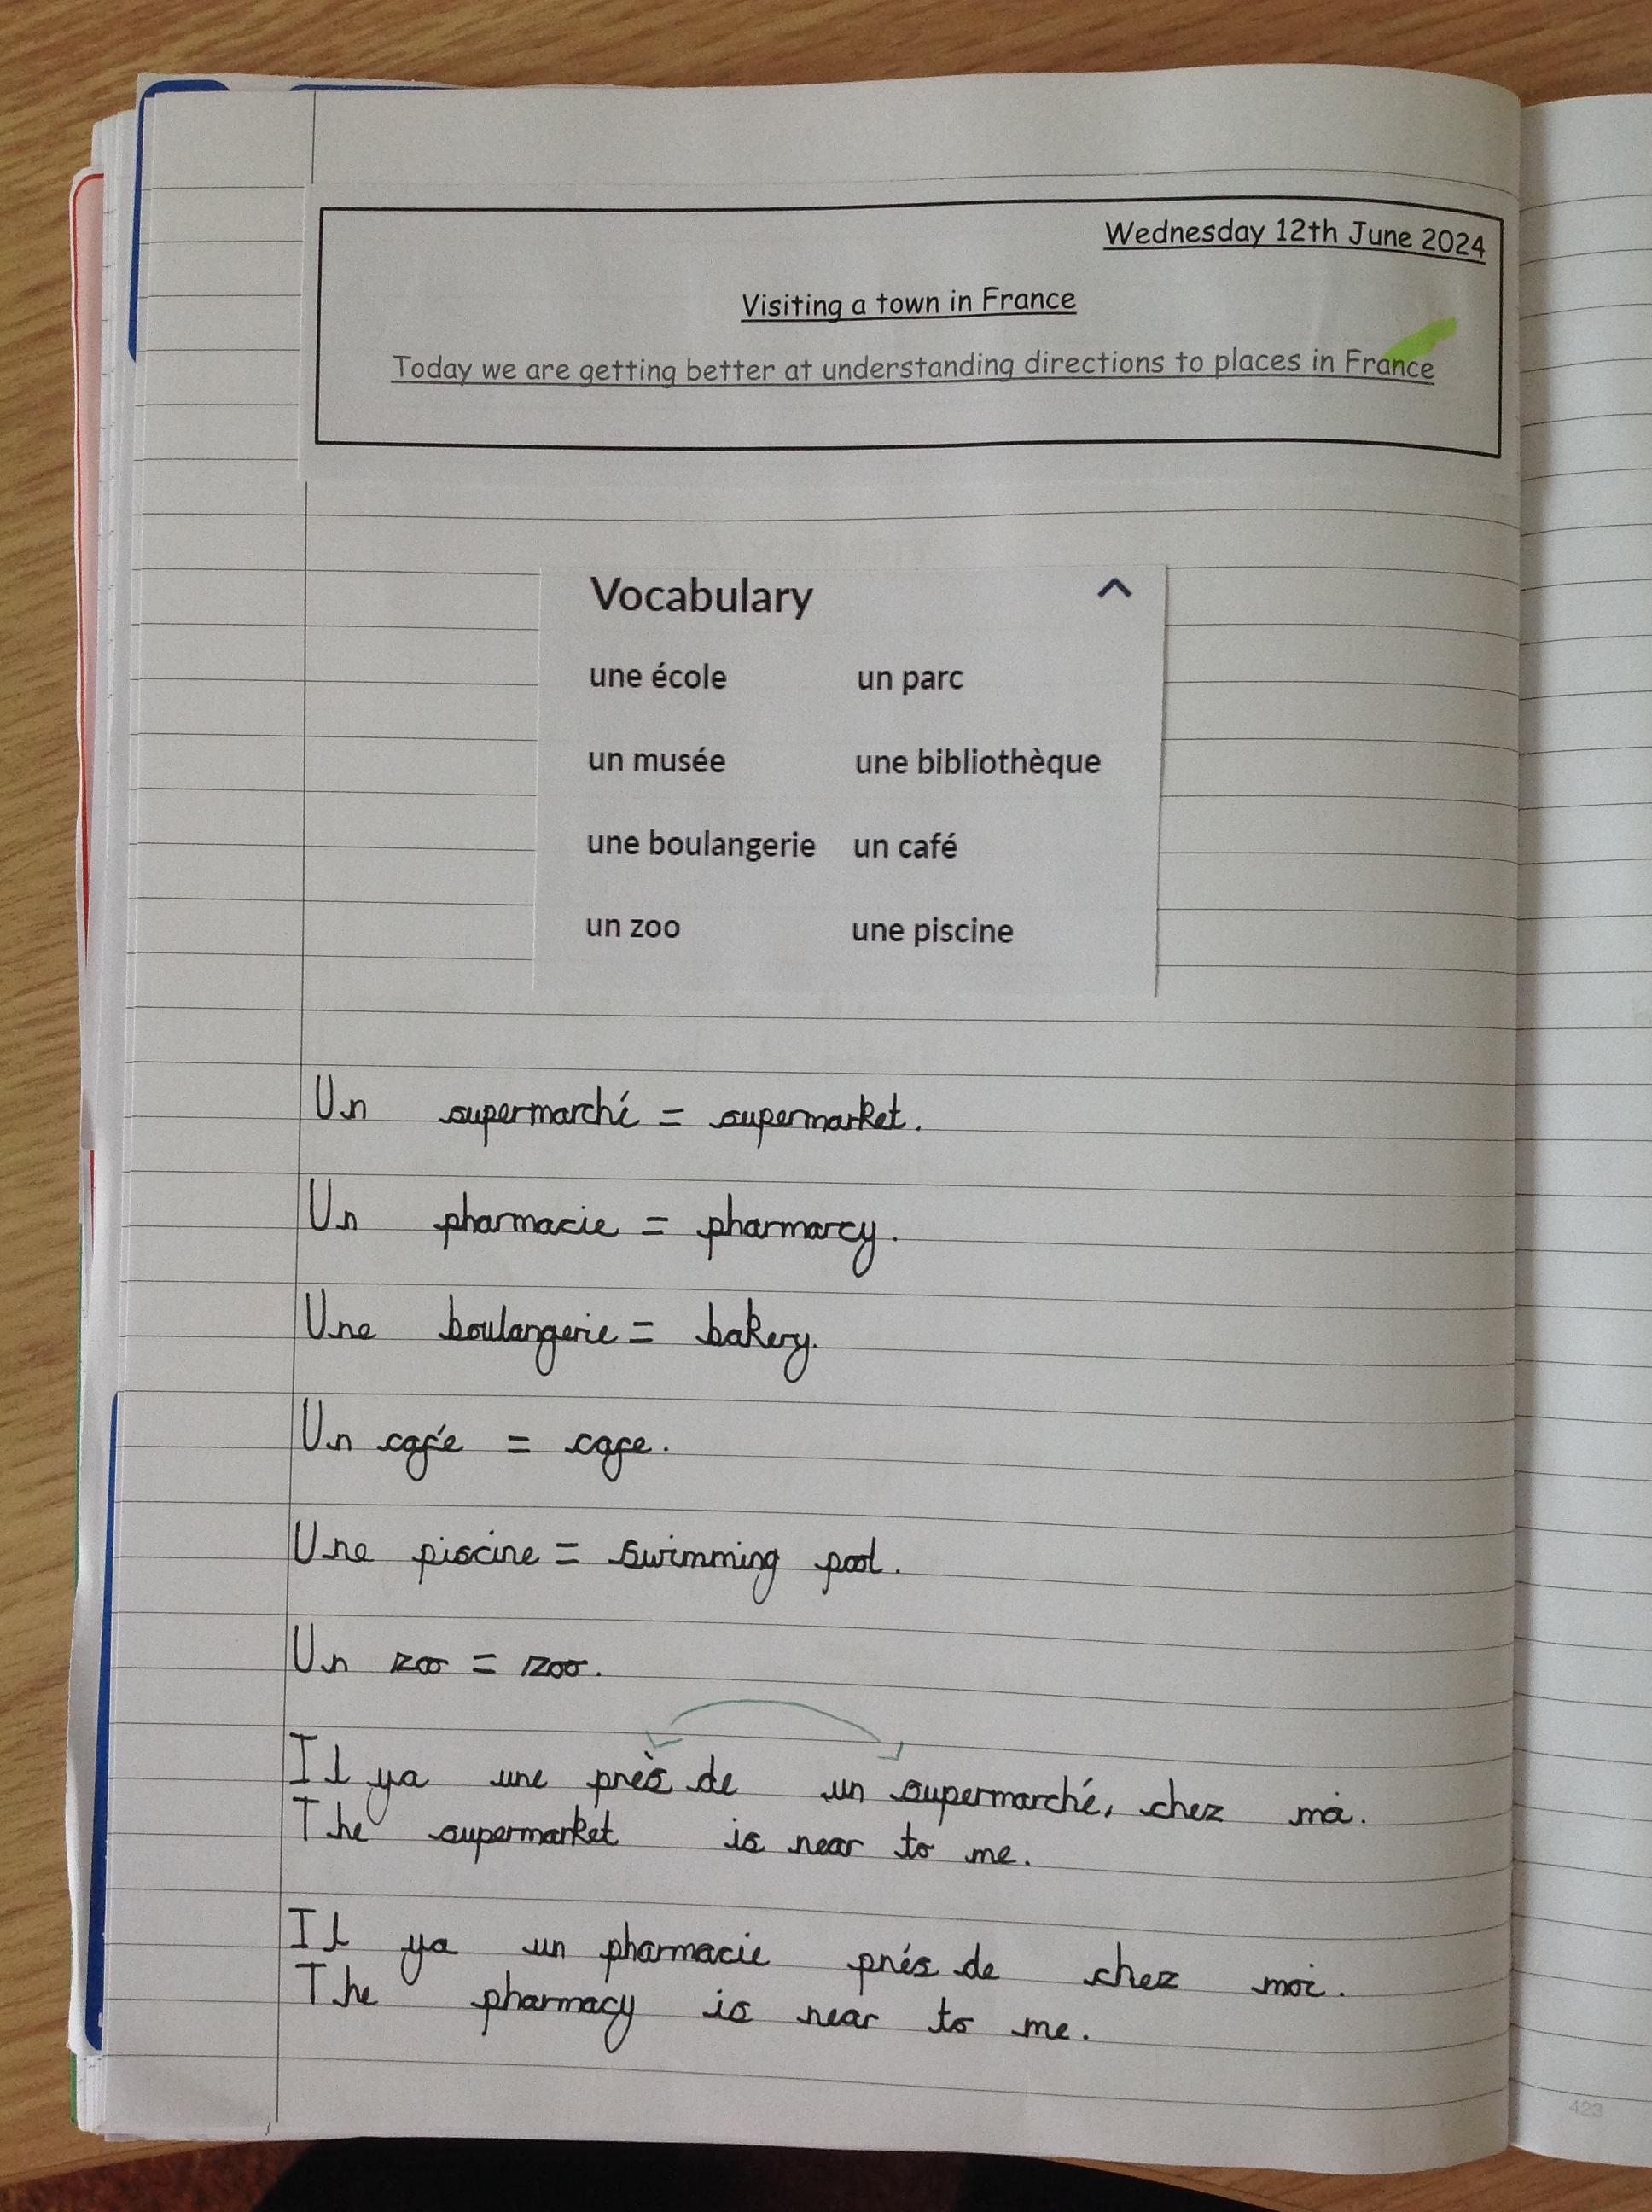 Wednesday 12th June 2024
Visiting a town in France
Today we are getting better at understanding directions to places in France
Vocabulary
une école un parc
un musée une bibliothèque
une boulangerie un café
un zoo une piscine
Un supermarché = supermarket.
Un pharmacie = pharmarcy.
Une boulangerie = bakery.
Un café = cafe.
Une piscine = swimming pool.
Un zoo = zoo.
Il ya une près de un supermarché, chez moi.
The supermarket is near to me.
Il ya un pharmacie prés de chez moi.
The pharmacy is near to me.
423